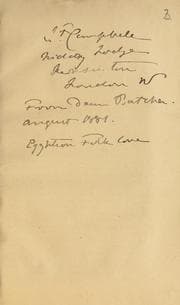 Campbell
Niddry Lodge
Kensington
London W
From Dean Butcher.
august 1881.
Egyptian Folk Lore